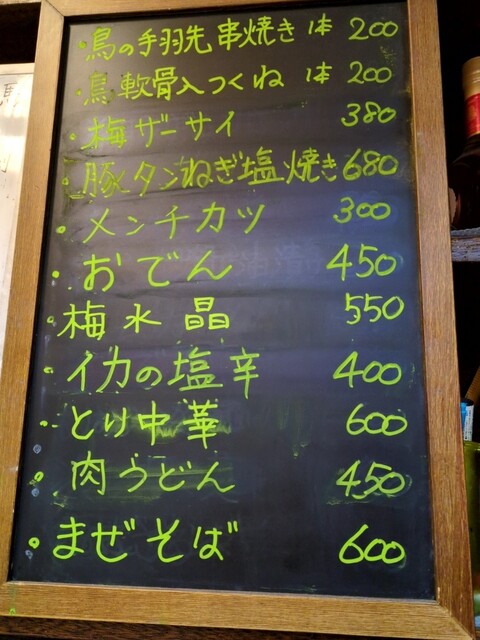 ・鳥の手羽先串焼き 1本 200
・鳥軟骨入つくね 1本 200
・梅ザーサイ 380
・豚タンねぎ塩焼き 680
・メンチカツ 300
・おでん 450
・梅水晶 550
・イカの塩辛 400
・とり中華 600
・肉うどん 450
・まぜそば 600